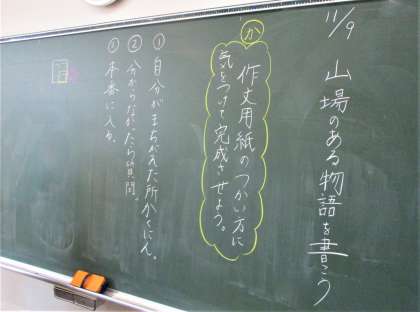 11/9 山場のある物語を書こう
か
作文用紙のつかい方に
気をつけて完成させよう。
①自分がまちがえた所かくにん。
②分からなかったら質問。
②本番に入る。